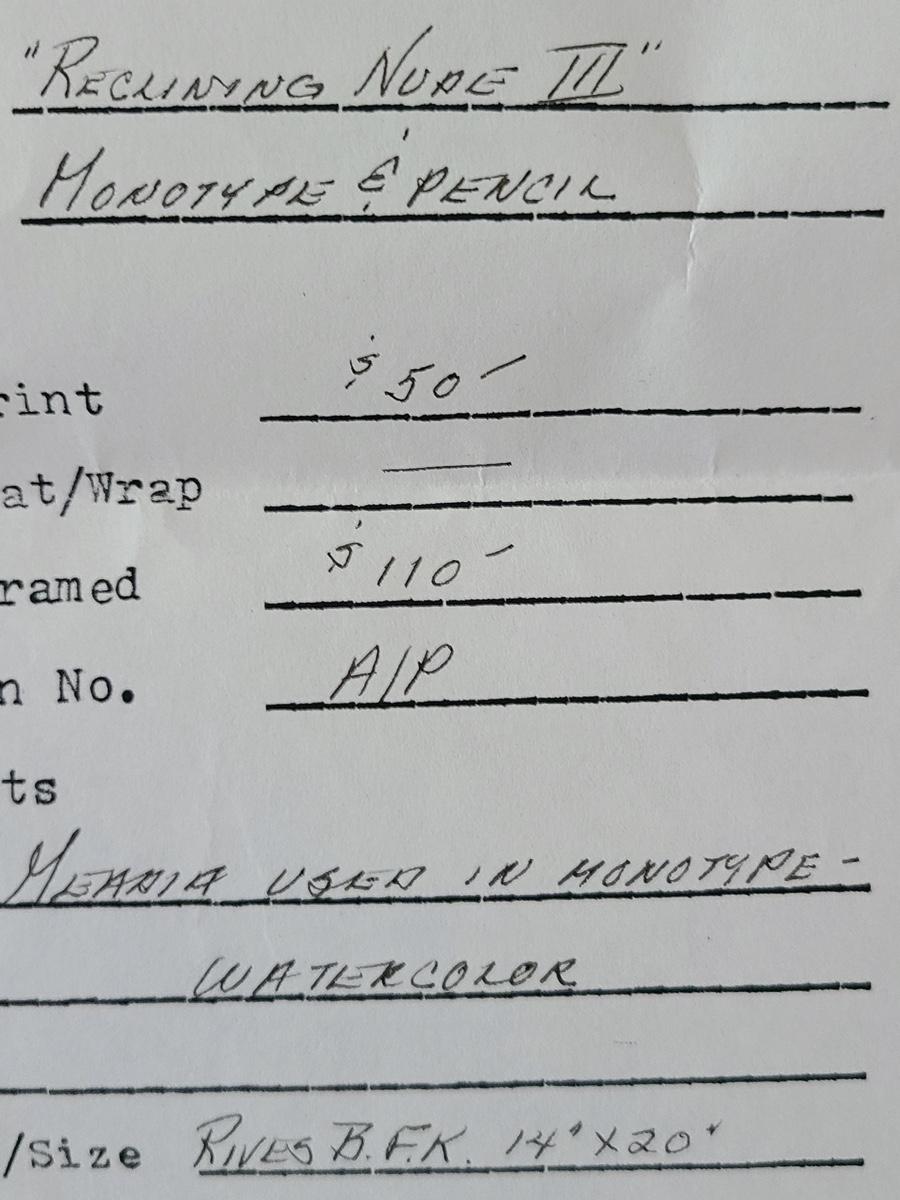 "RECLINING NUDE III"
MONOTYPE & PENCIL
rint $50-
at/Wrap —
ramed $110-
n No. A/P
ts
MEADIA USED IN MONOTYPE -
WATERCOLOR
/Size RIVES B.F.K. 14" X 20"